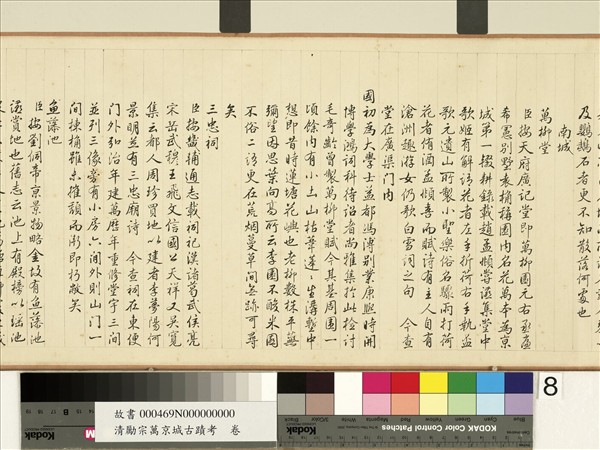 及鸚鵡石者更不知散落何處也
南城
萬柳堂
臣按天府廣記堂即萬柳園元右丞廉
希憲別墅長楠稱園內名花萬本為京
城第一輟耕錄載趙孟頫嘗讌集堂中
歌姬有解語花者左手折荷右手執盃
歌元遺山所製小聖樂俗名驟雨打荷
花者侑酒孟頫喜而賦詩有主人自有
滄洲趣游女仍歌白雪詞之句 今查
堂在廣渠門內
國初為大學士益都馮溥別業康熙時開
博學鴻詞科待詔者尚雅集於此檢討
毛奇齡曾製萬柳堂賦今其基周圍一
頃餘內有小土山枯葦蓮生滿塹中
想即昔時蓮塘花嶼也老柳數株平蕪
彌望因思葉向高所云李園不酸米園
不俗二語更在荒烟蔓草間無跡可尋
矣
三忠祠
臣按畿輔通志載祠祀漢諸葛武侯亮
宋岳武穆王飛文信國公天祥又吳寬
集云都人周珍買地以建者李夢陽何
景明並有三忠廟詩 今查祠在東便
門外弘治年建萬歷年重修堂宇三間
並列三像旁有小房六間外則山門一
間棟桷雖未摧頹而漸即朽敝矣
魚藻池
臣按劉侗帝京景物略金故有魚藻池
讌賞地也舊志云池上有殿榜以瑤池
8
Kodak
KODAK Color Control Patches
Blue Cyan Green Yellow Red Magenta White 3/Color Black
故書 000469N000000000
清勵宗萬京城古蹟考 卷